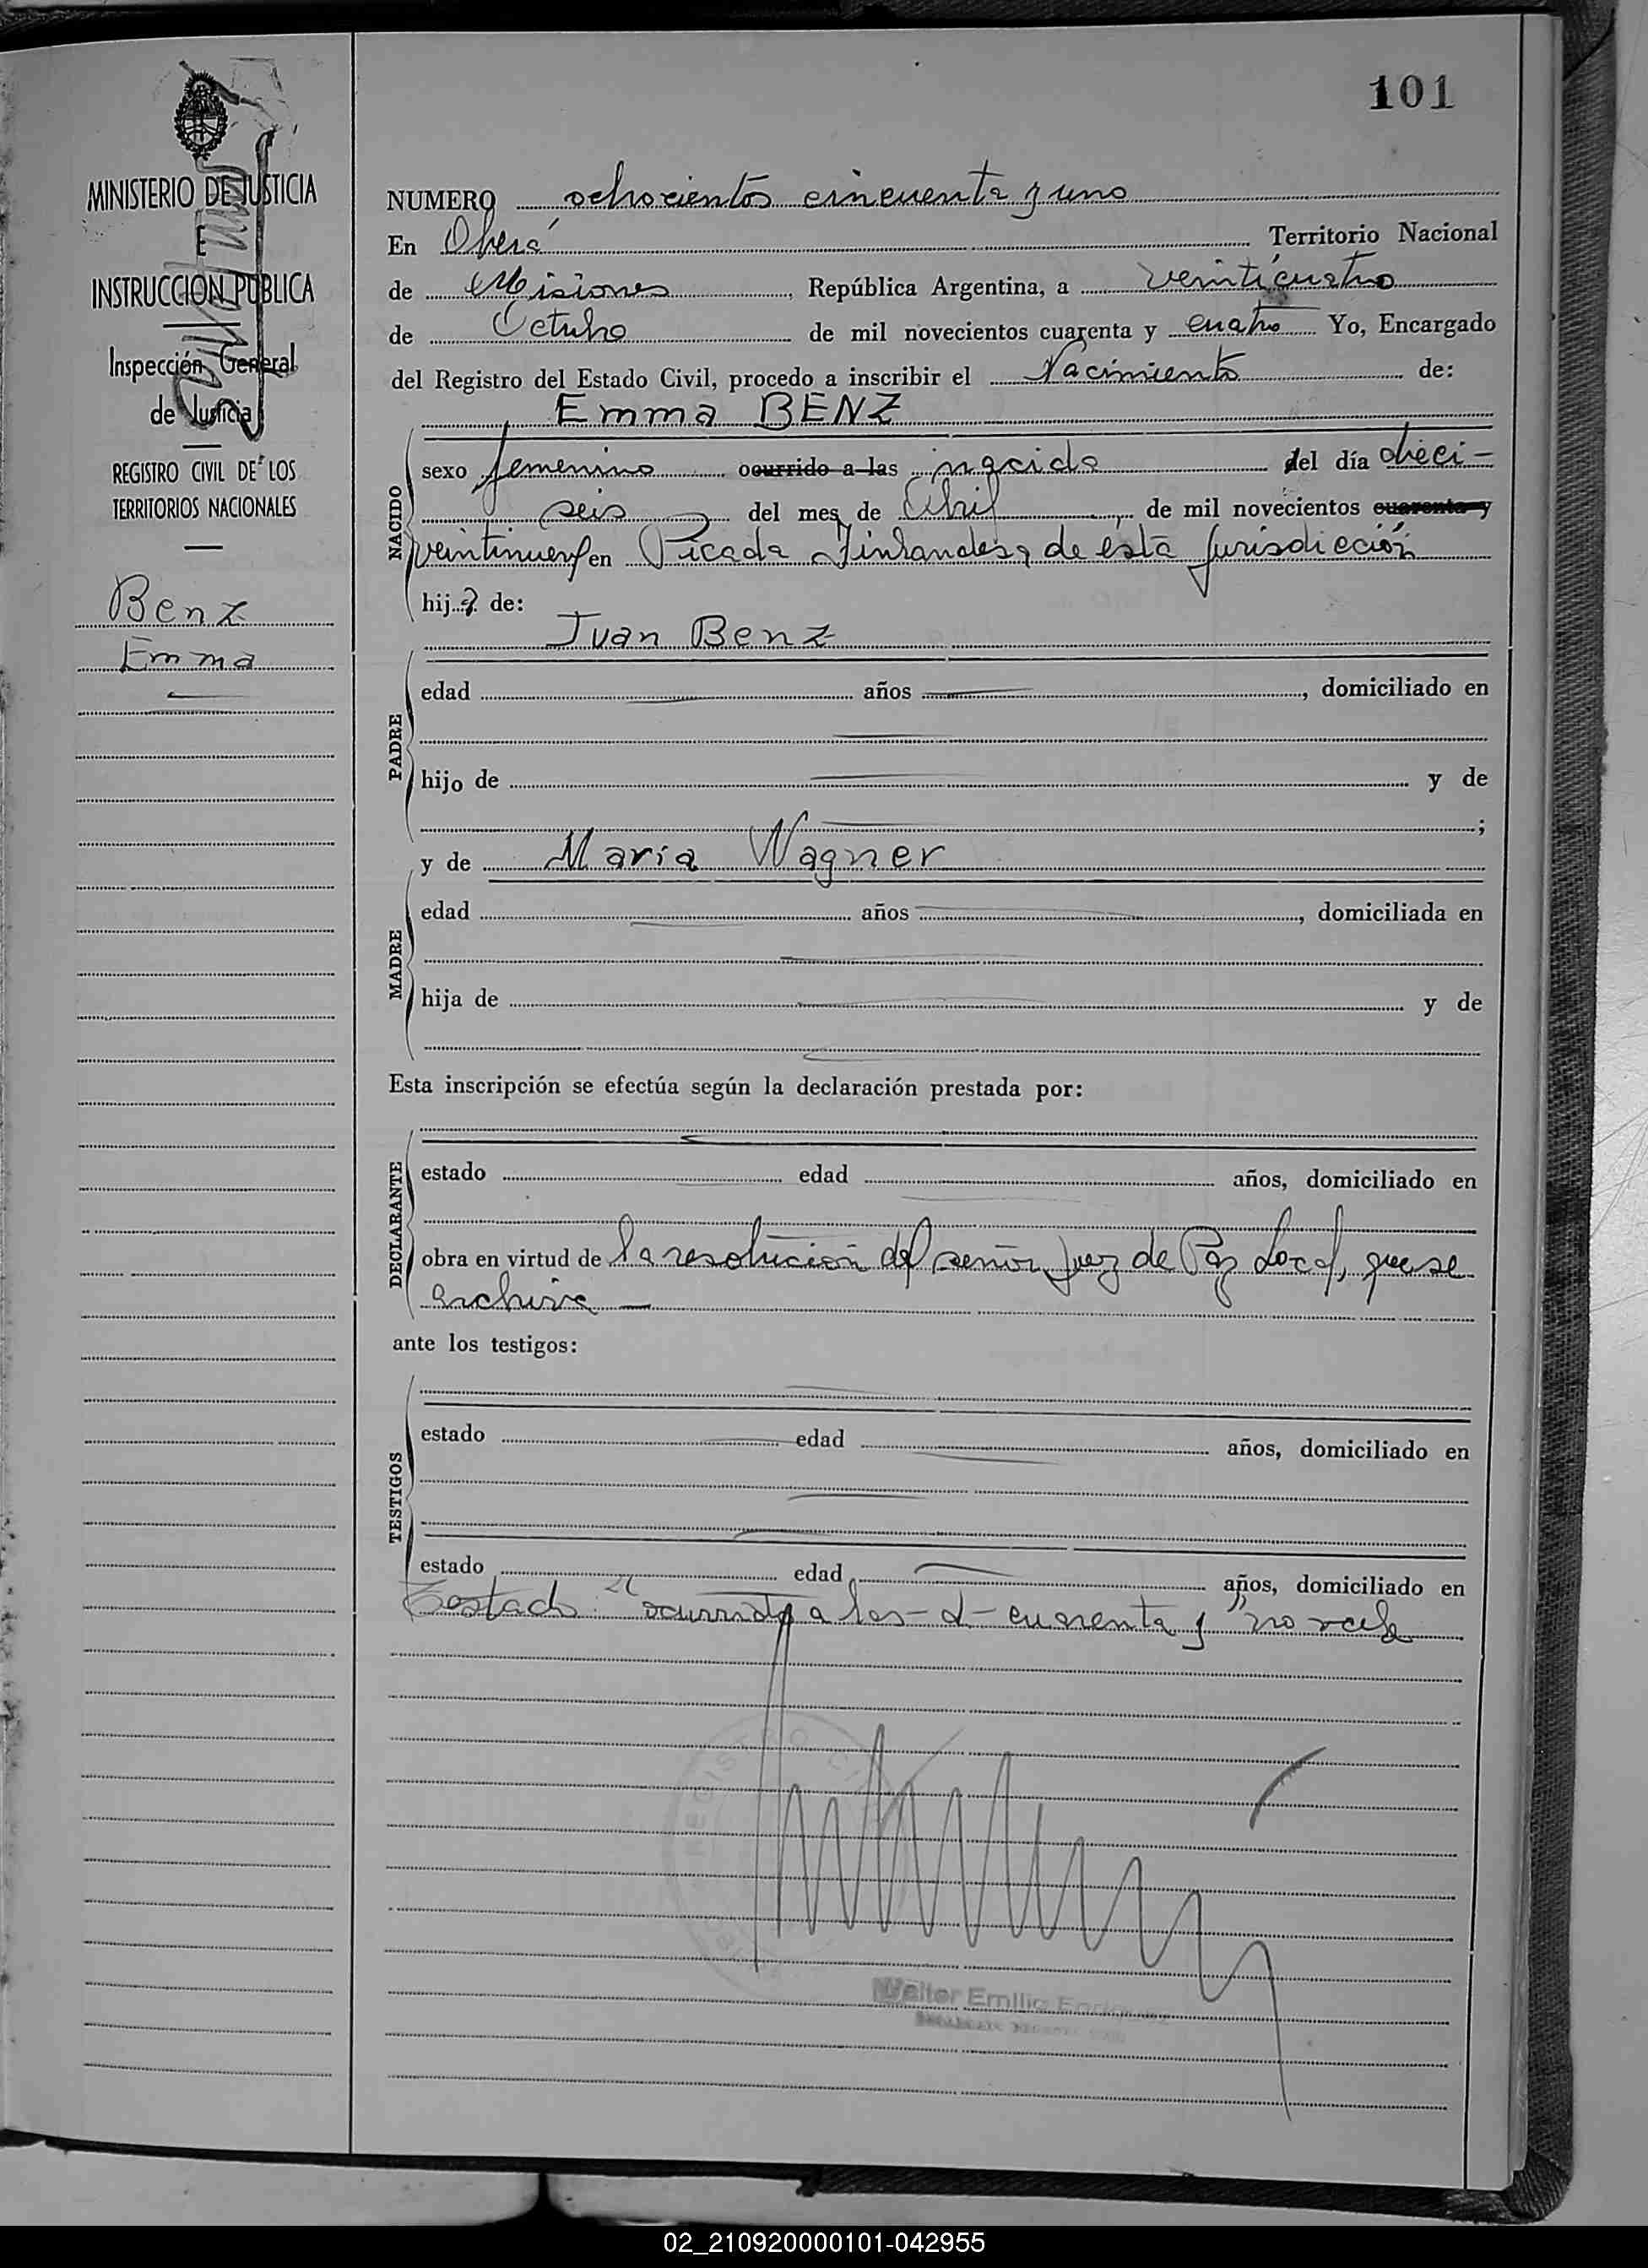 101
MINISTERIO DE JUSTICIA
E
INSTRUCCION PUBLICA
Inspección General
de Justicia
REGISTRO CIVIL DE LOS
TERRITORIOS NACIONALES
Benz
Emma
NUMERO ochocientos cincuenta y uno
En Oberá Territorio Nacional
de Misiones, República Argentina, a veinticuatro
de Octubre de mil novecientos cuarenta y cuatro Yo, Encargado
del Registro del Estado Civil, procedo a inscribir el Nacimiento de:
Emma BENZ
NACIDO
sexo femenino ocurrido a las nacida del día dieci-
seis del mes de Abril, de mil novecientos cuarenta y
veintinueve en Picada Finlandesa de esta jurisdicción
hija de:
Juan Benz
PADRE
edad años, domiciliado en
hijo de y de
;
y de María Wagner
MADRE
edad años, domiciliada en
hija de y de
Esta inscripción se efectúa según la declaración prestada por:
DECLARANTE
estado edad años, domiciliado en
obra en virtud de la resolución del señor Juez de Paz Local, que se
archiva
ante los testigos:
TESTIGOS
estado edad años, domiciliado en
estado edad años, domiciliado en
Testado: "ocurrido a las - d - cuarenta y" no vale
Walter Emilio
02_210920000101-042955